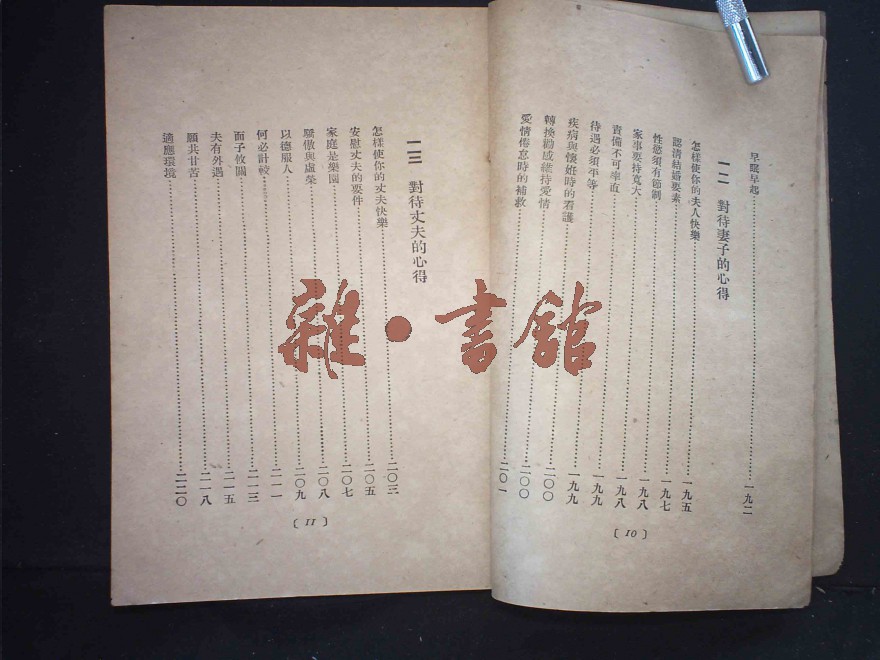 早眠早起……一九二
一二 對待妻子的心得
怎樣使你的夫人快樂……一九五
認清結婚要素……一九七
性慾須有節制……一九八
家事要持寬大……一九八
責備不可率直……一九八
待遇必須平等……一九九
疾病與懷妊時的看護……一九九
轉換勸慼維持愛情……二〇〇
愛情倦怠時的補救……二〇一
〔10〕
一三 對待丈夫的心得
怎樣使你的丈夫快樂……二〇三
安慰丈夫的要件……二〇五
家庭是樂園……二〇七
驕傲與虛榮……二〇八
以德服人……二〇九
何必計較……二一一
面子攸關……二一三
夫有外遇……二一五
願共甘苦……二一八
適應環境……二二〇
〔11〕
雜·書館